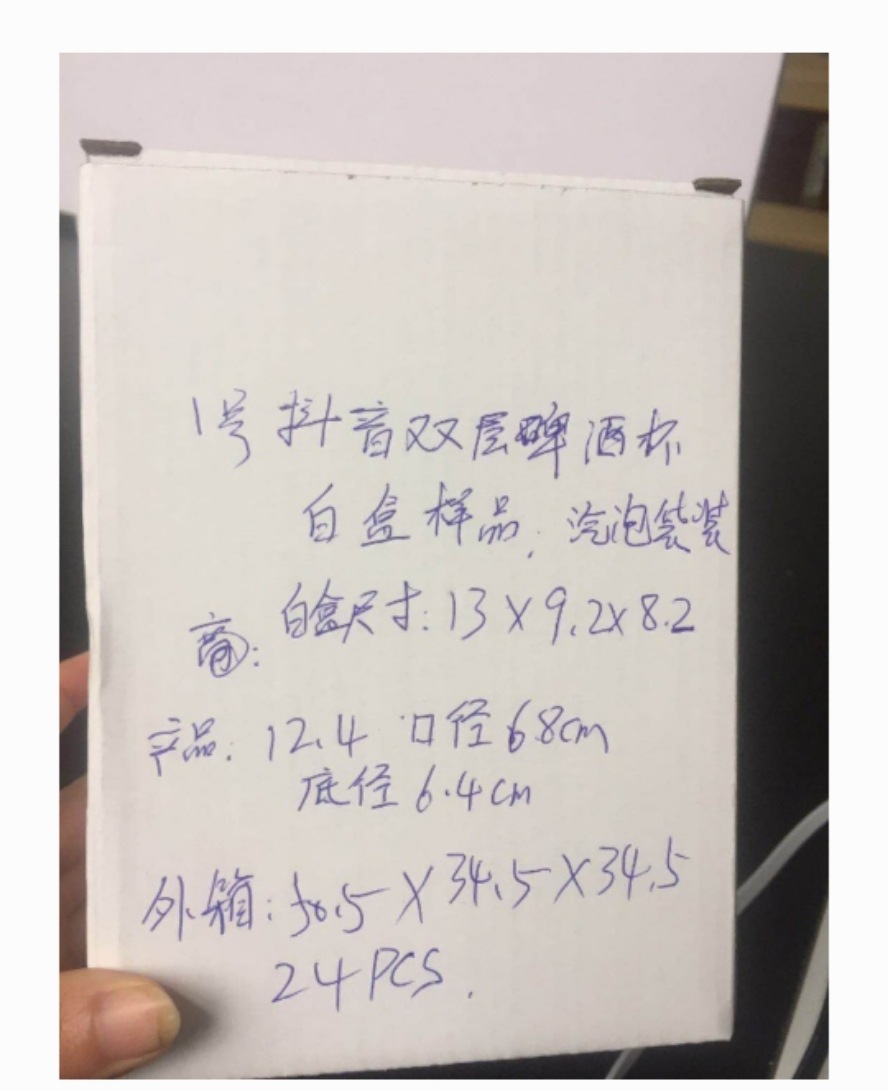 1号抖音双层啤酒杯
白盒样品,汽泡袋装
白盒尺寸:13X9.2X8.2
高:
产品:12.4 口径68cm
底径6.4cm
外箱:50.5X34.5X34.5
24PCS.